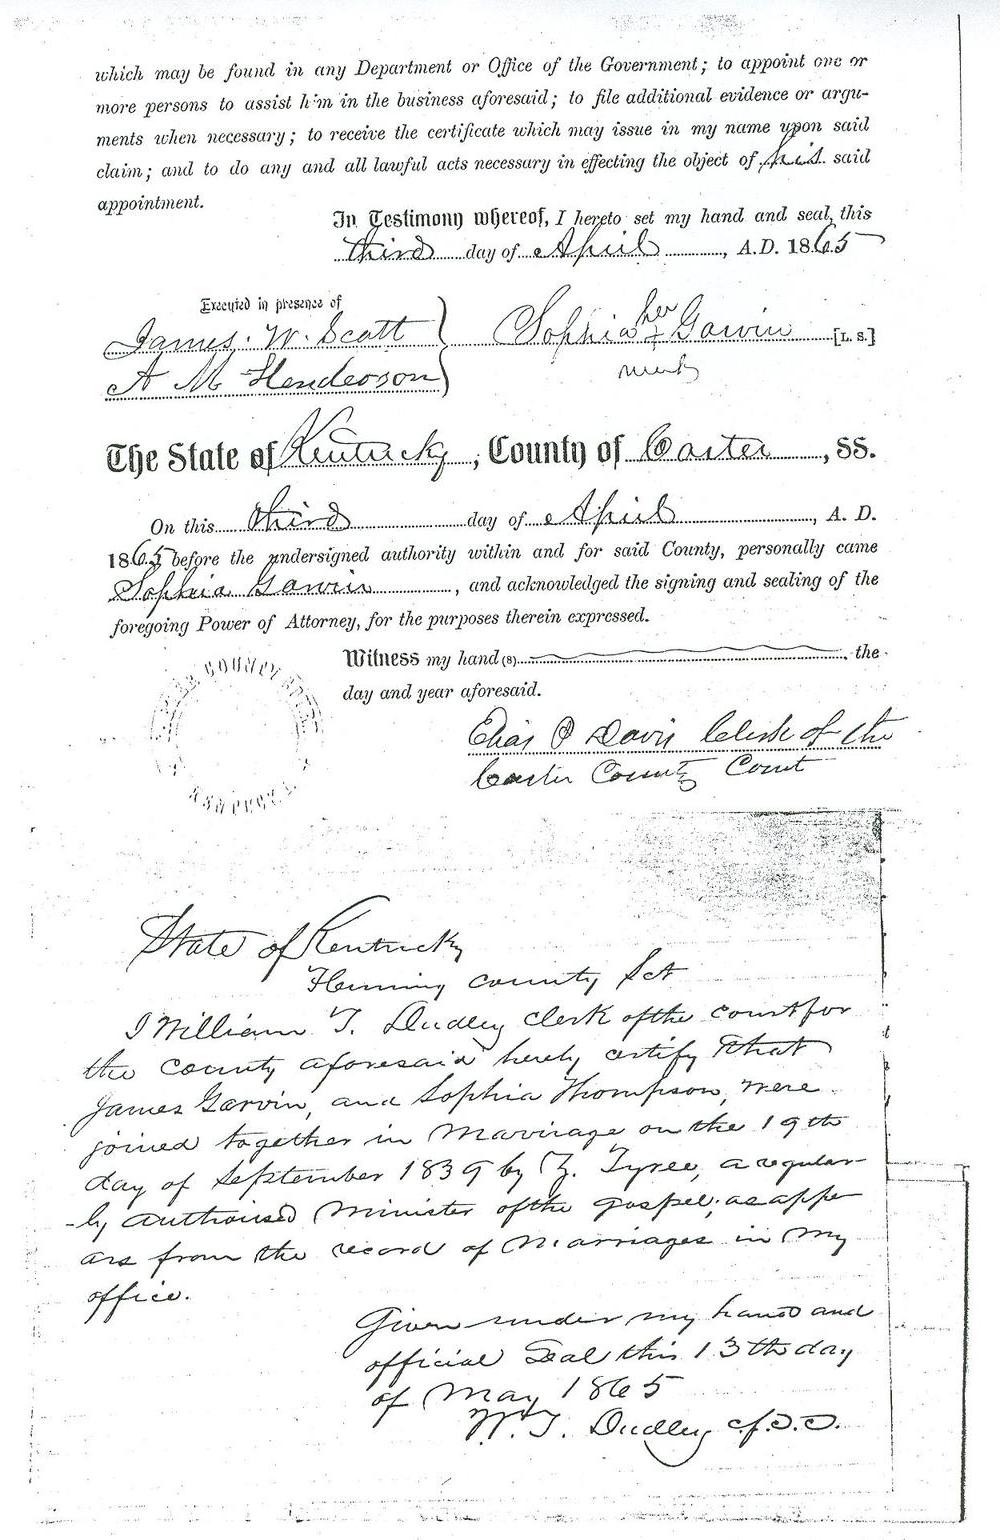 which may be found in any Department or Office of the Government; to appoint one or
more persons to assist him in the business aforesaid; to file additional evidence or argu-
ments when necessary; to receive the certificate which may issue in my name upon said
claim; and to do any and all lawful acts necessary in effecting the object of his said
appointment.
In Testimony whereof, I hereto set my hand and seal, this
third day of April, A.D. 1865
Executed in presence of
James. W. Scott
A M Henderson
her
Sophia + Garvin [L. S.]
mark
The State of Kentucky, County of Carter, SS.
On this third day of April, A. D.
1865 before the undersigned authority within and for said County, personally came
Sophia Garvin, and acknowledged the signing and sealing of the
foregoing Power of Attorney, for the purposes therein expressed.
Witness my hand (s) the
day and year aforesaid.
COUNTY
Elias P Davis Clerk of the
Carter County Court
State of Kentucky
Fleming county Sct
I William T. Dudley clerk of the court for
the county aforesaid hereby certify that
James Garvin, and Sophia Thompson, were
joined together in Marriage on the 19th
day of September 1839 by Z. Tyree, a regular-
-ly authorised Minister of the gospel; as appe
ars from the record of Marriages in my
office.
Given under my hand and
official Seal this 13th day
of May 1865
W. T. Dudley